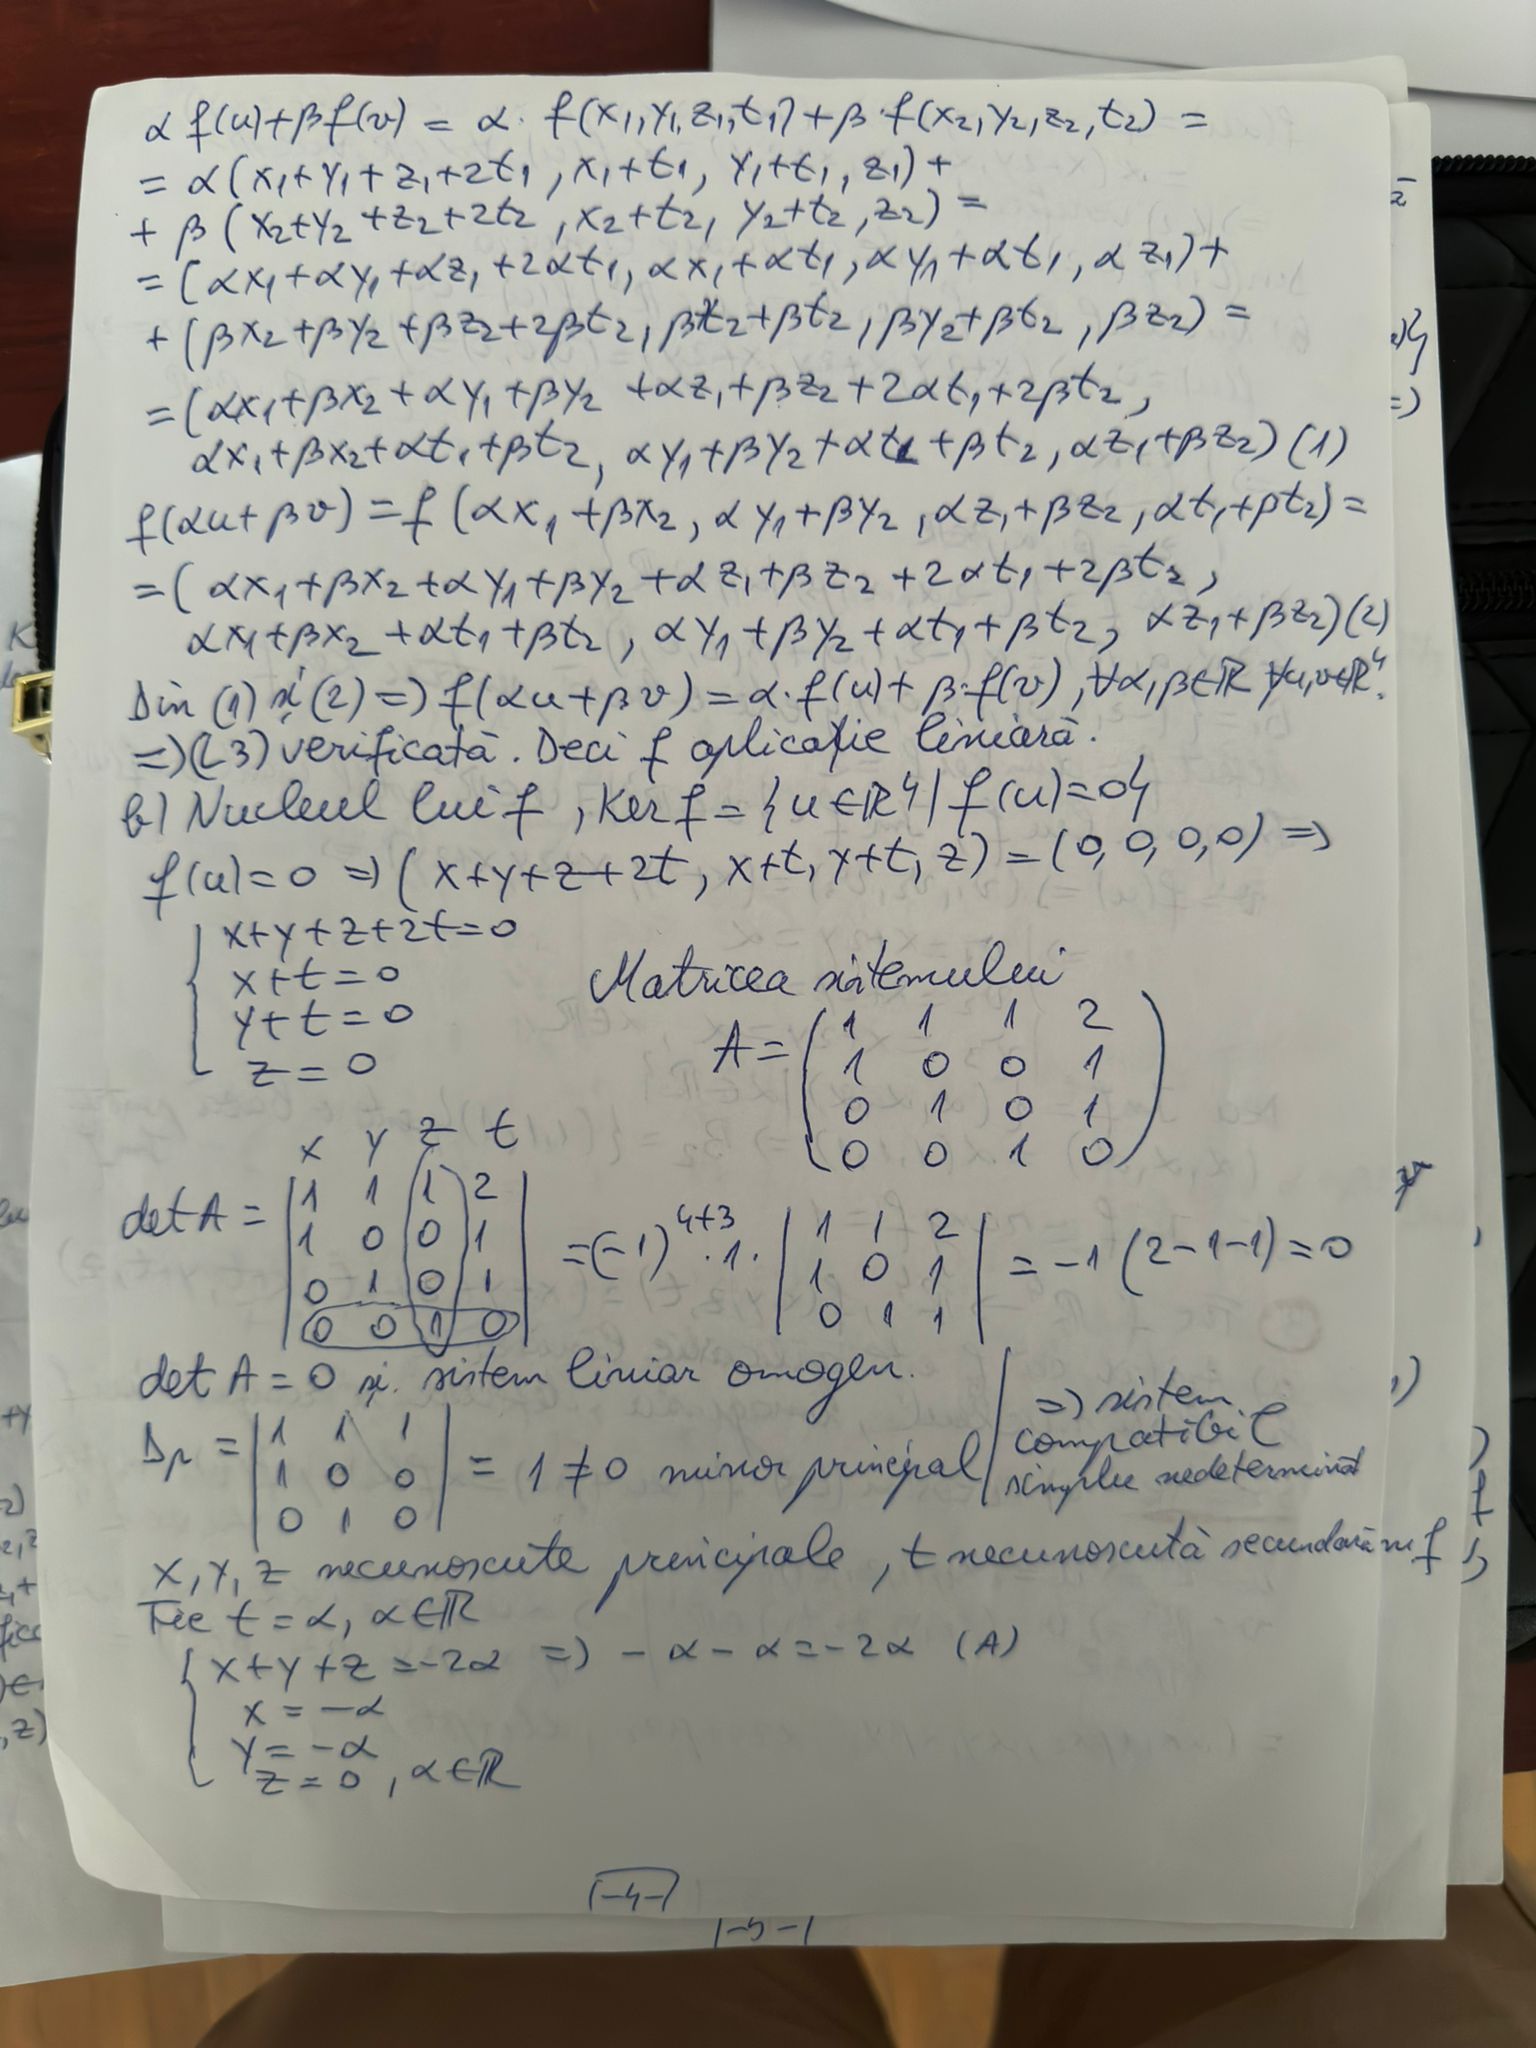 α f(u)+βf(v) = α· f(x₁,y₁,z₁,t₁)+β·f(x₂,y₂,z₂,t₂) =
= α(x₁+y₁+z₁+2t₁, x₁+t₁, y₁+t₁, z₁)+
+ β(x₂+y₂+z₂+2t₂, x₂+t₂, y₂+t₂, z₂) =
= (αx₁+αy₁+αz₁+2αt₁, αx₁+αt₁, αy₁+αt₁, αz₁)+
+ (βx₂+βy₂+βz₂+2βt₂, βx₂+βt₂, βy₂+βt₂, βz₂) =
= (αx₁+βx₂+αy₁+βy₂ +αz₁+βz₂+2αt₁+2βt₂,
αx₁+βx₂+αt₁+βt₂, αy₁+βy₂+αt₁+βt₂, αz₁+βz₂) (1)
f(αu+βv) = f(αx₁+βx₂, αy₁+βy₂, αz₁+βz₂, αt₁+βt₂) =
= (αx₁+βx₂+αy₁+βy₂+αz₁+βz₂+2αt₁+2βt₂,
αx₁+βx₂+αt₁+βt₂, αy₁+βy₂+αt₁+βt₂, αz₁+βz₂) (2)
Din (1) și (2) => f(αu+βv) = α·f(u)+β·f(v), ∀α,β∈ℝ ∀u,v∈ℝ⁴.
=> (L3) verificată. Deci f aplicație liniară.
b) Nucleul lui f, Ker f = {u∈ℝ⁴ | f(u)=0}
f(u)=0 => (x+y+z+2t, x+t, y+t, z) = (0, 0, 0, 0) =>
x+y+z+2t=0
x+t=0
y+t=0
z=0
Matricea sistemului
A = ( 1 1 1 2
1 0 0 1
0 1 0 1
0 0 1 0 )
x y z t
det A = | 1 1 1 2 | = (-1)⁴⁺³ ·1· | 1 1 2 | = -1 (2-1-1) = 0
| 1 0 0 1 | | 1 0 1 |
| 0 1 0 1 | | 0 1 1 |
| 0 0 1 0 |
det A = 0 și sistem liniar omogen.
Δp = | 1 1 1 | = 1 ≠ 0 minor principal
| 1 0 0 |
| 0 1 0 |
=> sistem
compatibil
simplu nedeterminat
x, y, z necunoscute principale, t necunoscută secundară
Fie t = α, α∈ℝ
x+y+z = -2α => -α-α = -2α (A)
x = -α
y = -α
z = 0, α∈ℝ
-4-
-5-